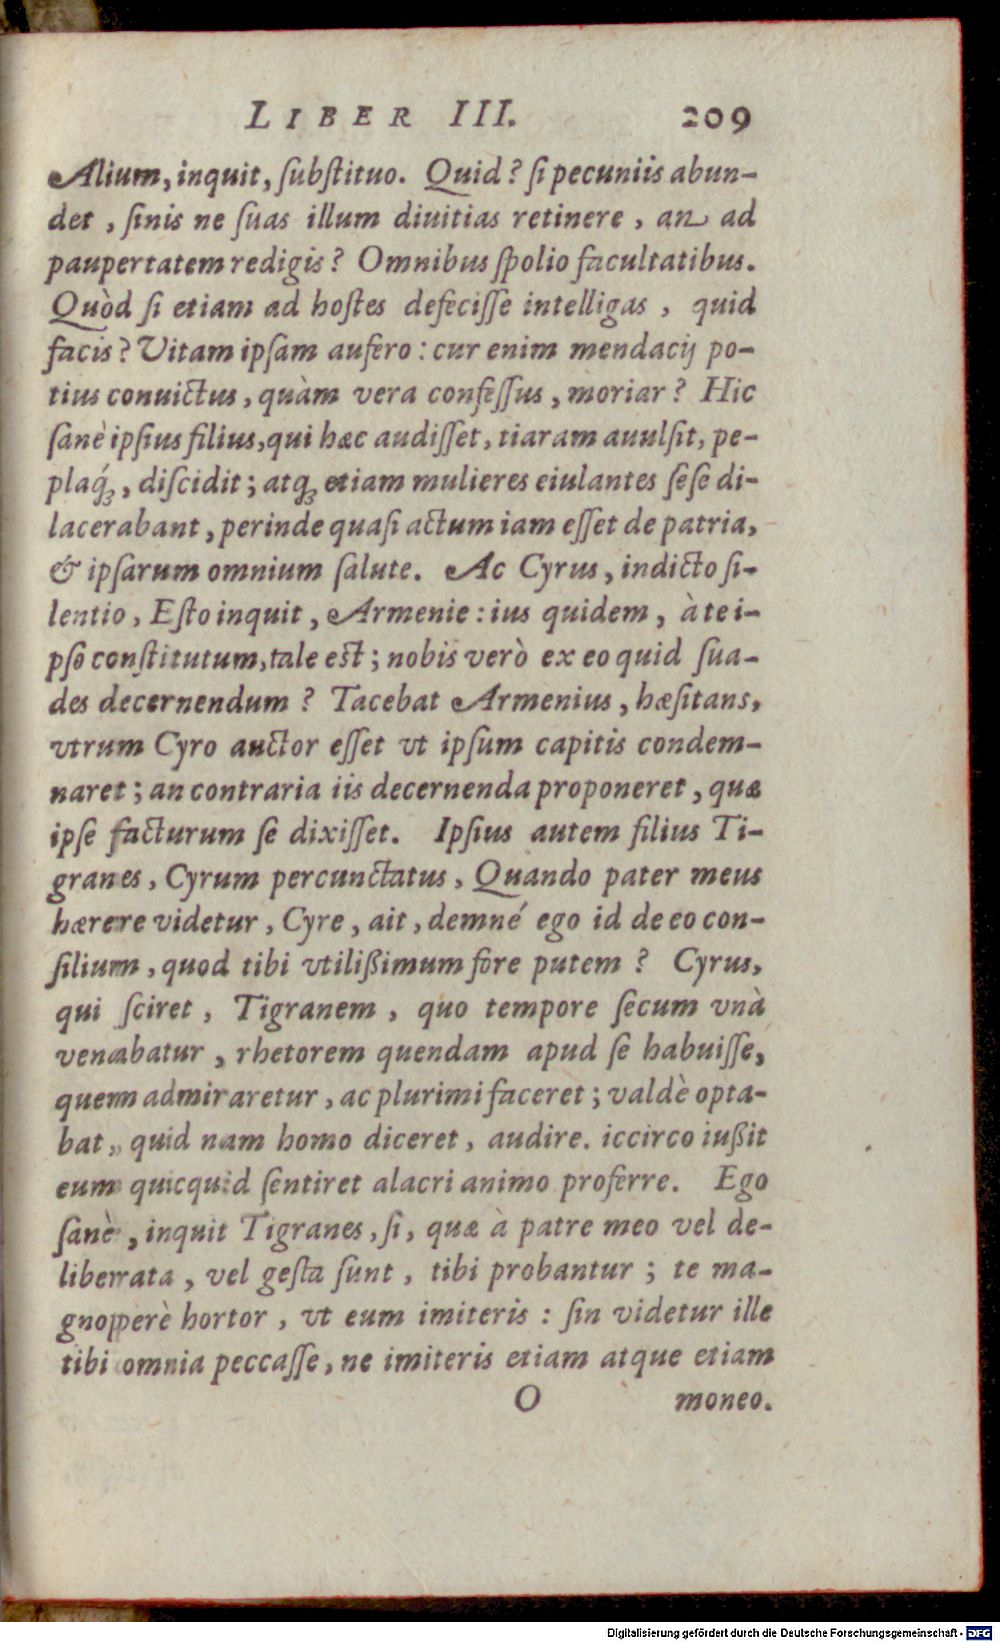 LIBER III. 209
Alium, inquit, ſubſtituo. Quid? ſi pecuniis abun-
det, ſinis ne ſuas illum diuitias retinere, an ad
paupertatem redigis? Omnibus ſpolio facultatibus.
Quòd ſi etiam ad hoſtes defeciſſe intelligas, quid
facis? Vitam ipſam aufero: cur enim mendacij po-
tius conuictus, quàm vera confeſſus, moriar? Hic
ſanè ipſius filius, qui hæc audiſſet, tiaram auulſit, pe-
plaq́;, diſcidit; atq; etiam mulieres eiulantes ſeſe di-
lacerabant, perinde quaſi actum iam eſſet de patria,
& ipſarum omnium ſalute. Ac Cyrus, indicto ſi-
lentio, Eſto inquit, Armenie: ius quidem, à te i-
pſo conſtitutum, tale est; nobis verò ex eo quid ſua-
des decernendum? Tacebat Armenius, hæſitans,
vtrum Cyro auctor eſſet vt ipſum capitis condem-
naret; an contraria iis decernenda proponeret, quæ
ipſe facturum ſe dixiſſet. Ipſius autem filius Ti-
granes, Cyrum percunctatus, Quando pater meus
hærere videtur, Cyre, ait, demné ego id de eo con-
ſilium, quod tibi vtilißimum fore putem? Cyrus,
qui ſciret, Tigranem, quo tempore ſecum vnà
venabatur, rhetorem quendam apud ſe habuiſſe,
quem admiraretur, ac plurimi faceret; valdè opta-
bat, quid nam homo diceret, audire. iccirco iußit
eum quicquid ſentiret alacri animo proferre. Ego
ſanè, inquit Tigranes, ſi, quæ à patre meo vel de-
liberata, vel geſta ſunt, tibi probantur; te ma-
gnoperè hortor, vt eum imiteris: ſin videtur ille
tibi omnia peccaſſe, ne imiteris etiam atque etiam
O moneo.
Digitalisierung gefördert durch die Deutsche Forschungsgemeinschaft - DFG